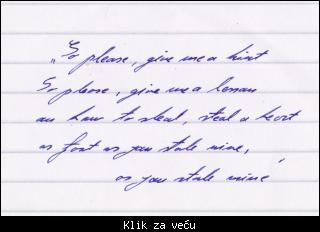 „So please, give me a hint
So please, give me a lesson
on how to steal, steal a heart
as fast as you stole mine,
as you stole mine"
Klik za veću